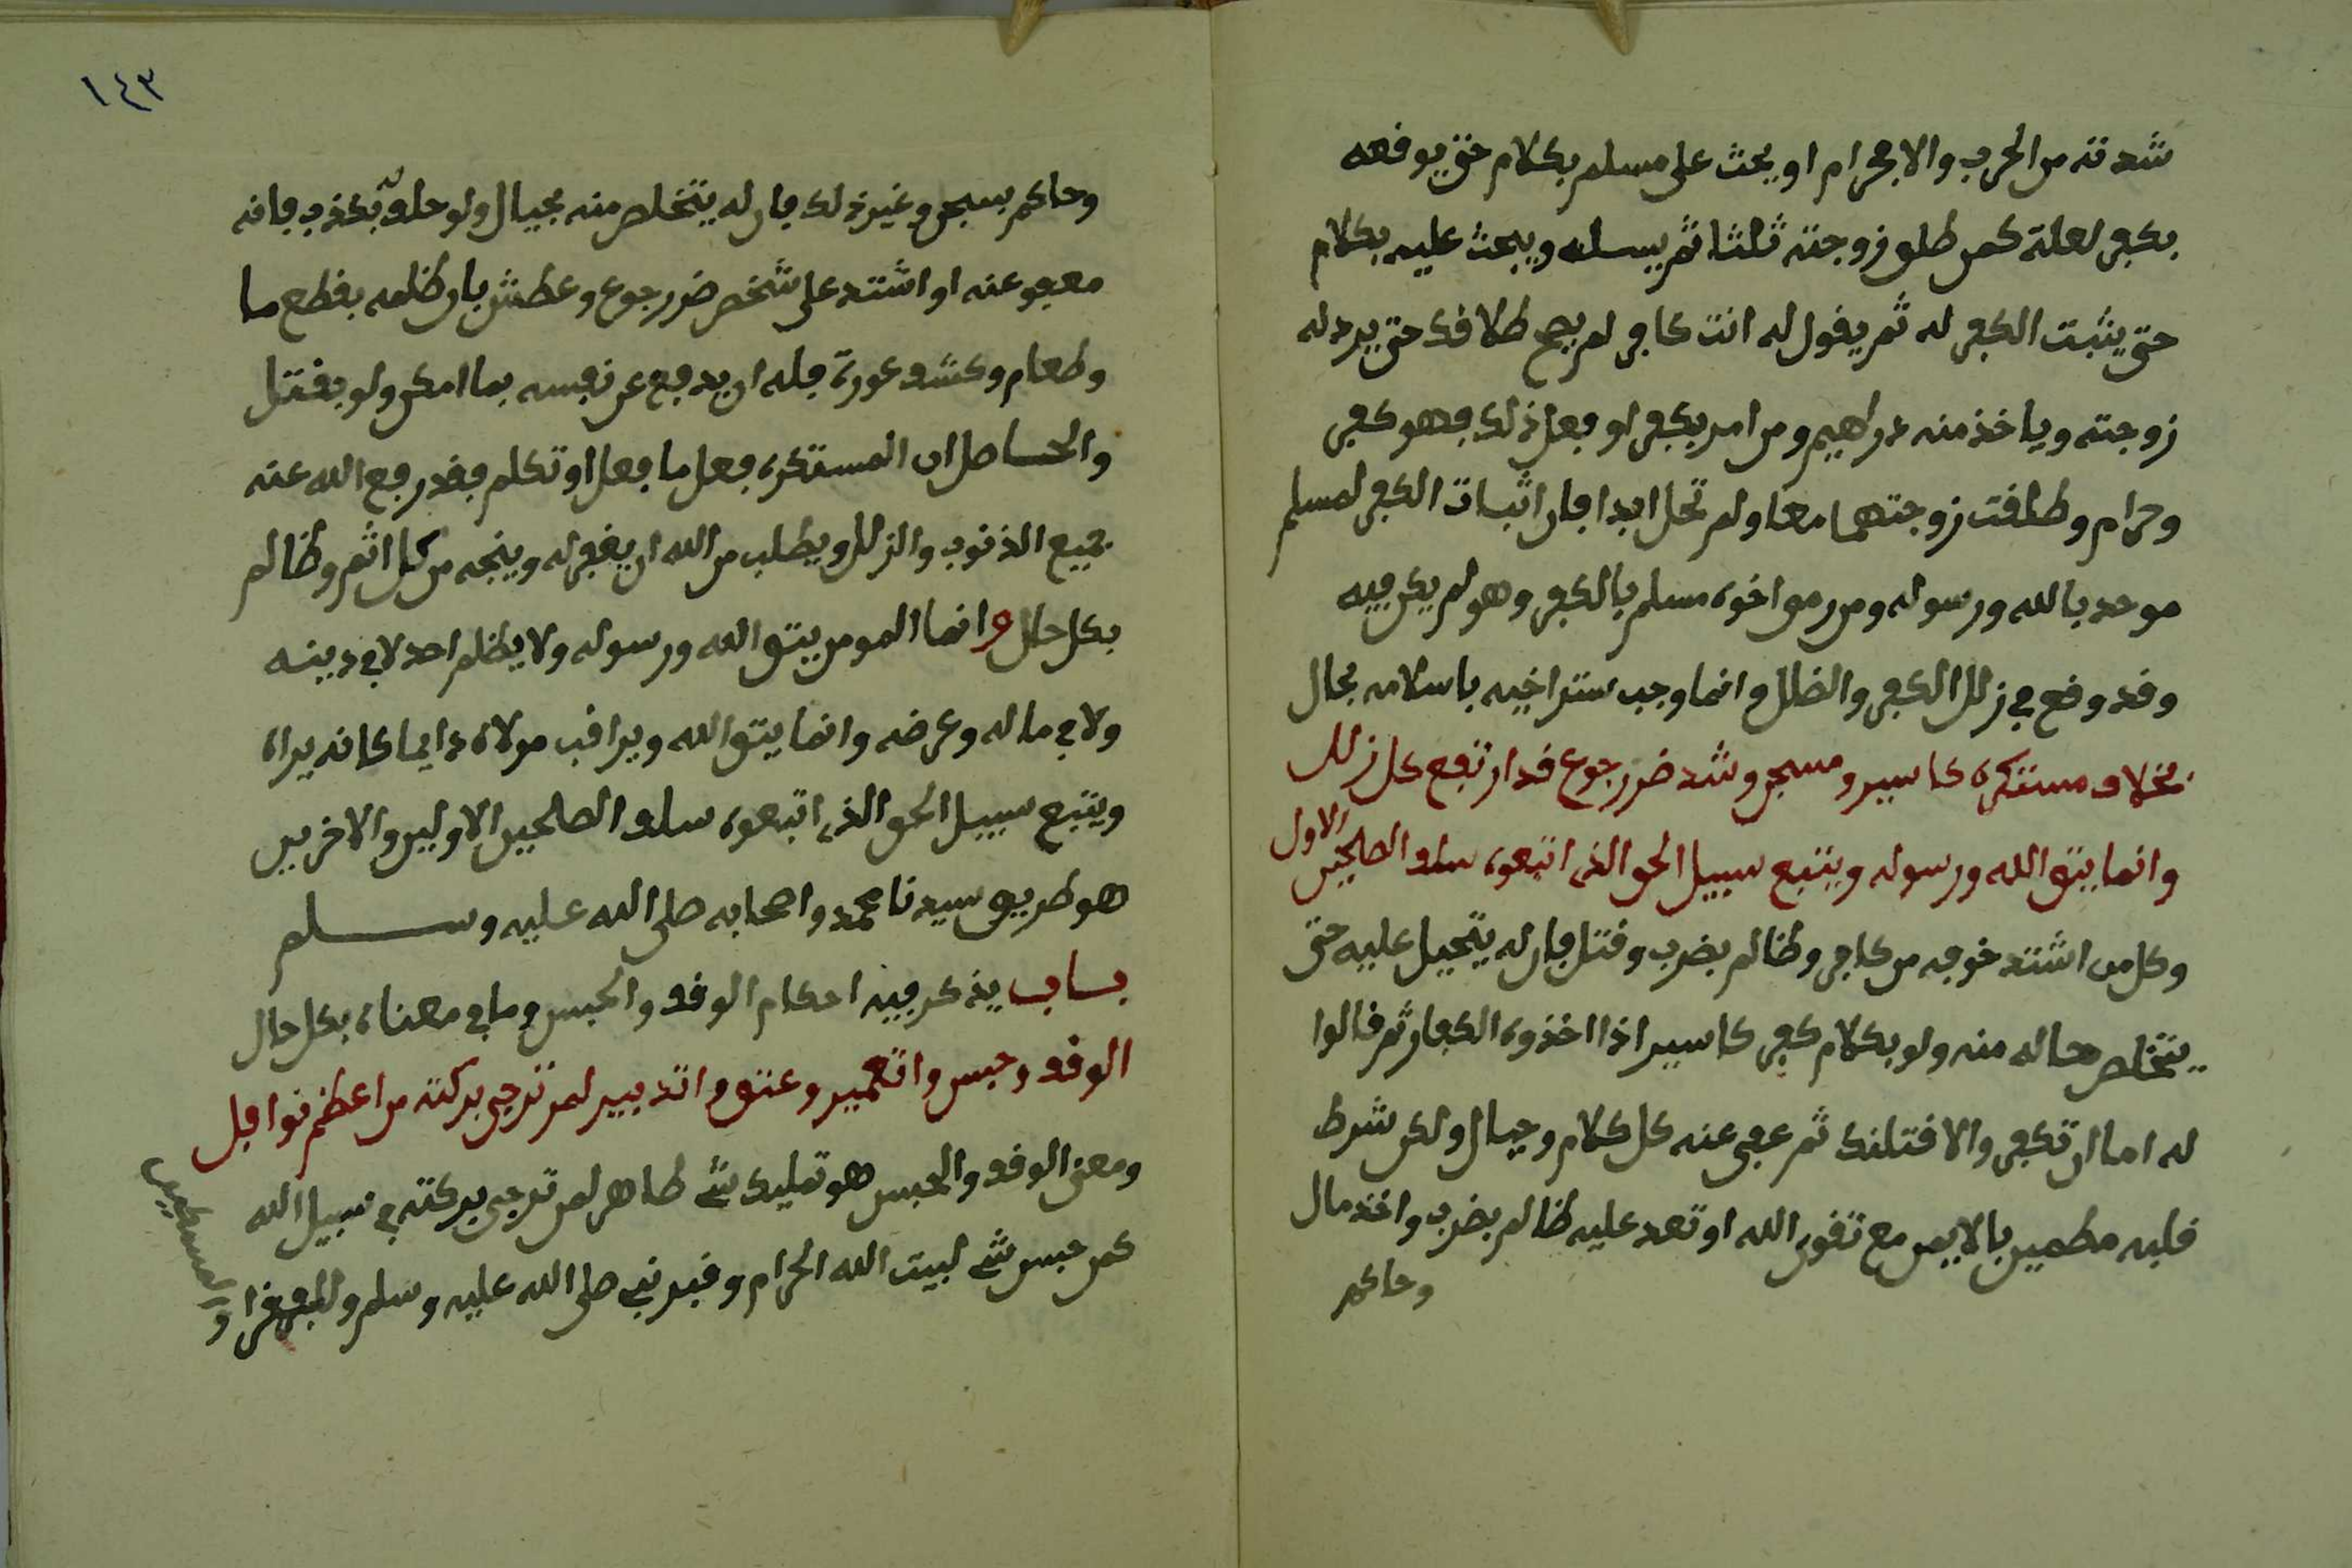 شدته من الحرب والاجرام او يبحث على مسلم بكلام حتى يوقعه
بكفر لعلة كمن طلق زوجته ثلثا ثم يسله ويبحث عليه بكلام
حتى يثبت الكفر له ثم يقول له انت كافر لم يصح طلاقك حتى يرد له
زوجته وياخذ منه دراهيم ومن امر بكفر او فعل ذلك فهو كفر
وحرام وطلقت زوجتهما معا ولم تحل ابدا فان اثبات الكفر لمسلم
موحد بالله ورسوله ومن رمى اخوه مسلم بالكفر وهو لم يكن فيه
وقد وقع في زلل الكفر والضلل وانما وجب ستر اخيه باسلامه بحال
بخلاف مستكره كاسير ومسجن وشد ضرر جوع قد ارتفع كل زلل
وانما يتق الله ورسوله ويتبع سبيل الحق الذي اتبعوه سلف الصلحين الاول
وكل من اشتد خوفه من كافر وظالم بضرب وقتل فان له يتحيل عليه حتى
يتخلص حاله منه ولو بكلام كفر كاسير اذا اخذوه الكفار ثم قالوا
له اما ان تكفر والا قتلنك ثم عفى عنه كل كلام وحيال ولكن شرط
قلبه مطمين بالايمن مع تقوى الله او تعد عليه ظالم بضرب واخذ مال
وحاكم
١٤٣
وحاكم بسجن وغير ذلك فان له يتخلص منه بحيال ولو حلف بكذب فانه
معفو عنه او اشتد على شخص ضرر جوع وعطش بان ظلمه بقطع ما
وطعام وكشف عورة فله ان يدفع عن نفسه بما امكن ولو بقتل
والحاصل ان المستكره فعل ما فعل او تكلم فقد رفع الله عنه
جميع الذنوب والزلل ويطلب من الله ان يغفر له وينجه من كل اثم وظالم
بكل حال وانما المومن يتق الله ورسوله ولا يظلم احد لا في دينه
ولا في ماله وعرضه وانما يتق الله ويراقب مولاه دايما كانه يراه
ويتبع سبيل الحق الذي اتبعوه سلف الصلحين الاولين والاخرين
هو طريق سيدنا محمد واصحابه صلى الله عليه وسلم
باب يذكر فيه احكام الوقف والحبس وما في معناه بكل حال
الوقف وحبس واتعمير وعتق واتدبير لمن ترجى بركته من اعظم نوافل
ومعنى الوقف والحبس هو تمليك شي طاهر لمن ترجى بركته في سبيل الله
كمن حبس شي لبيت الله الحرام وقبر نبي صلى الله عليه وسلم وللفقرا و
المسكين